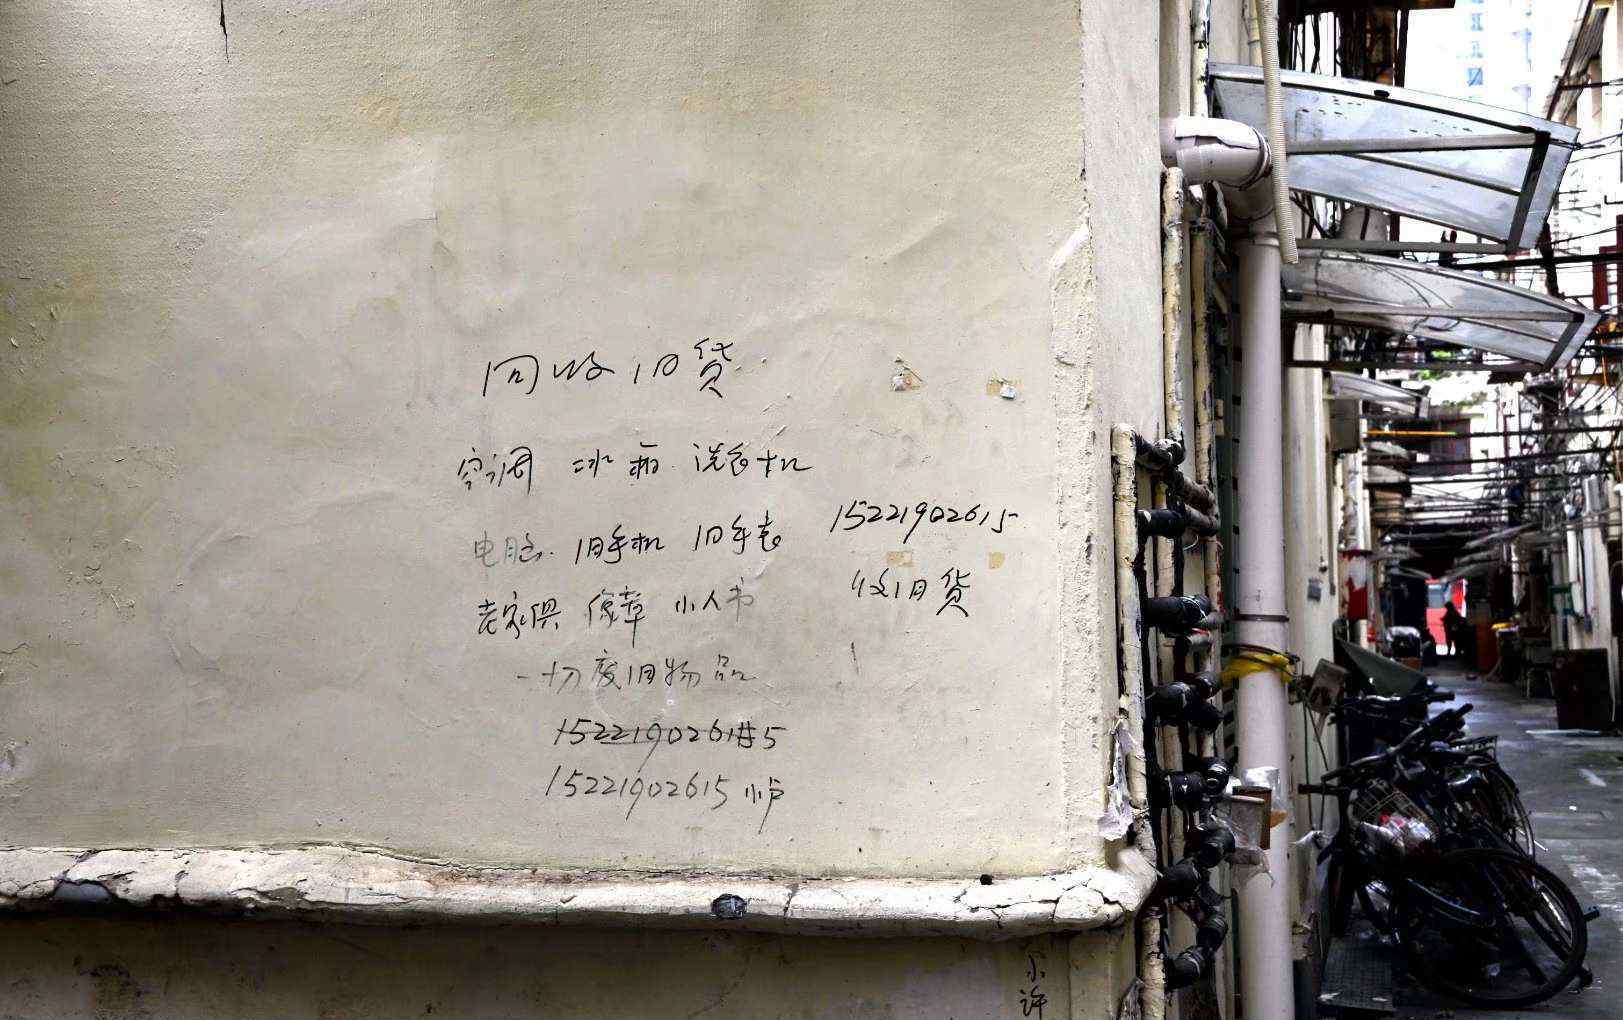 回收旧货
空调 冰箱 洗衣机
电脑 旧手机 旧手表
老家俱 像章 小人书
一切废旧物品
15221902615
15221902615 小卢
15221902615
收旧货
小许